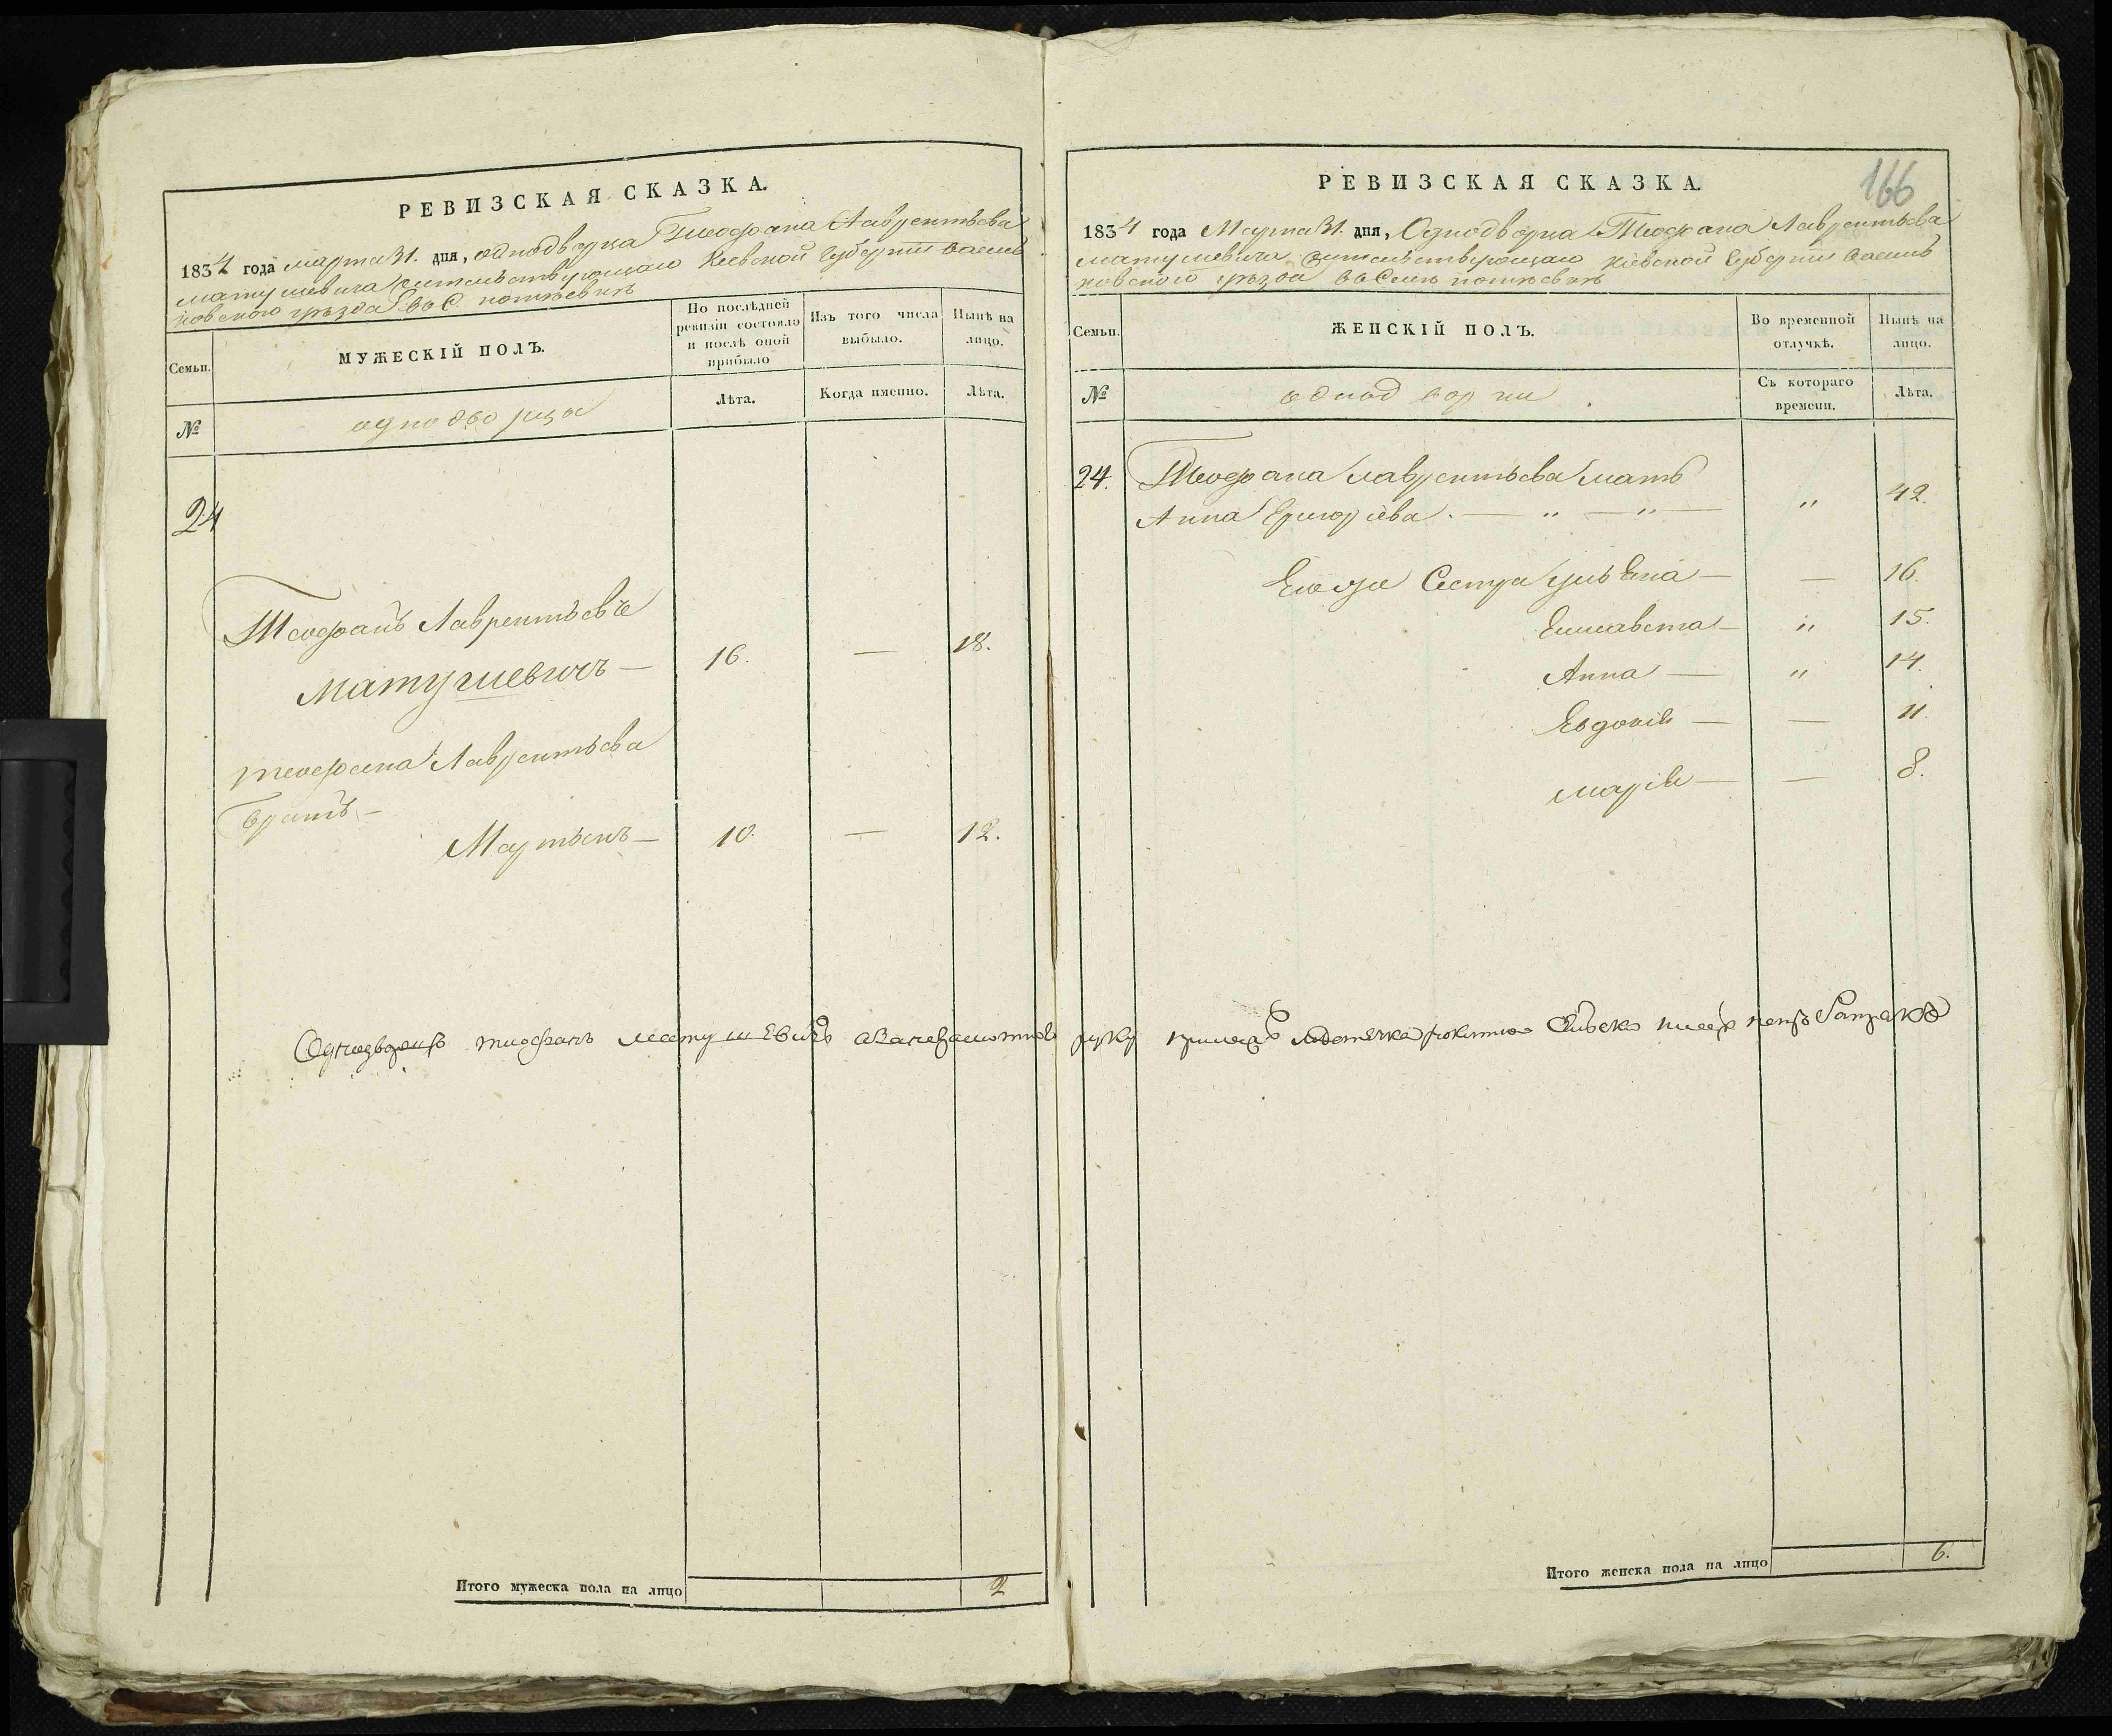 РЕВИЗСКАЯ СКАЗКА.
1834 года марта 31. дня, однодворца Теофана Лаврентьева
матушевича жительствующаго Кіевской Губерніи Василь
ковского уѣзда во С.
Семьи.
МУЖЕСКІЙ ПОЛЪ.
По послѣдней
ревизіи состояло
и послѣ оной
прибыло
Изъ того числа
выбыло.
Нынѣ на
лицо.
№
однодворца
Лѣта.
Когда именно.
Лѣта.
24
Теофанъ Лаврентьевъ
Матушевичъ — 16. — 18.
теофана Лаврентьева
братъ —
Мартынъ — 10. — 12.
Однодворецъ теофанъ матушевичъ
Итого мужеска пола на лицо 2
166
РЕВИЗСКАЯ СКАЗКА.
1834 года Марта 31. дня, Однодворца Теофана Лаврентьева
матушевича жительствующаго кіевской Губерніи Василь
ковского уѣзда
Семьи.
ЖЕНСКІЙ ПОЛЪ.
Во временной
отлучкѣ.
Нынѣ на
лицо.
№
однодворки
Съ котораго
времени.
Лѣта.
24. Теофана лаврентьева мать
Анна Григоріева. — " — " — " 42.
Его же Сестра — — 16.
Елисавета — " 15.
Анна — " 14.
Евдокія — — 11.
марія — — 8.
руку
Итого женска пола на лицо 6.